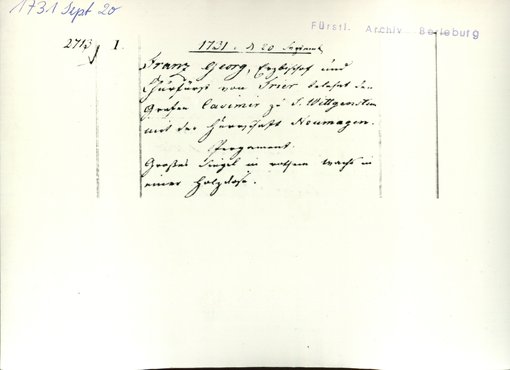 1731 Sept 20
Fürstl. Archiv Berleburg
2713 1.
1731. d 20 Septembr
Franz Georg, Erzbischof und
Churfürst von Trier belehnt den
Grafen Casimir zu S. Wittgenstein
mit der Herrschaft Neumagen.
Pergament.
Großes Siegel in rothem Wachs in
einer Holzdose.